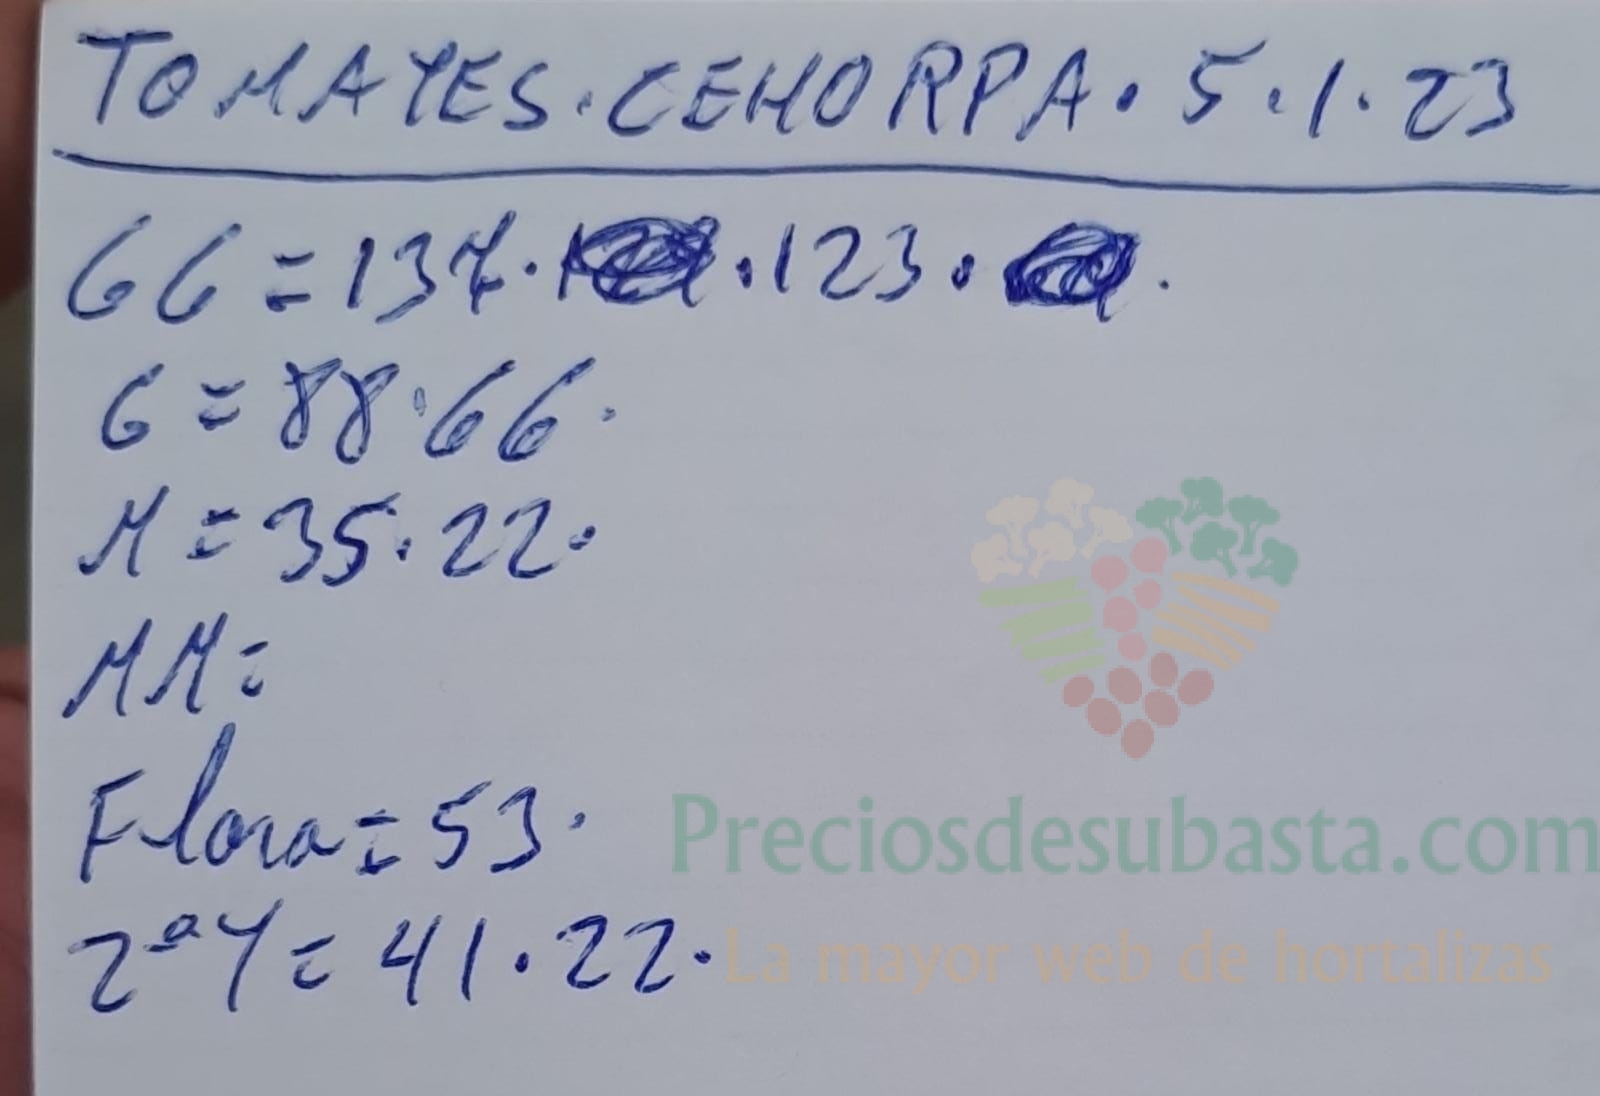 TOMATES. CEHORPA. 5.1.23
GG = 137. .123. .
G = 88.66.
M = 35.22.
MM =
Flora = 53.
2ª Y = 41.22.
Preciosdesubasta.com
La mayor web de hortalizas